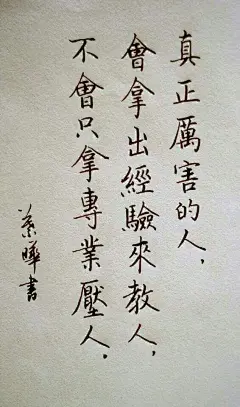 真正厲害的人，
會拿出經驗來教人，
不會只拿專業壓人。